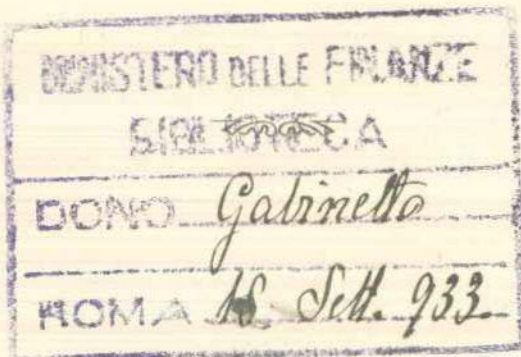 MINISTERO DELLE FINANZE
BIBLIOTECA
DONO Gabinetto
ROMA 18 Sett. 933